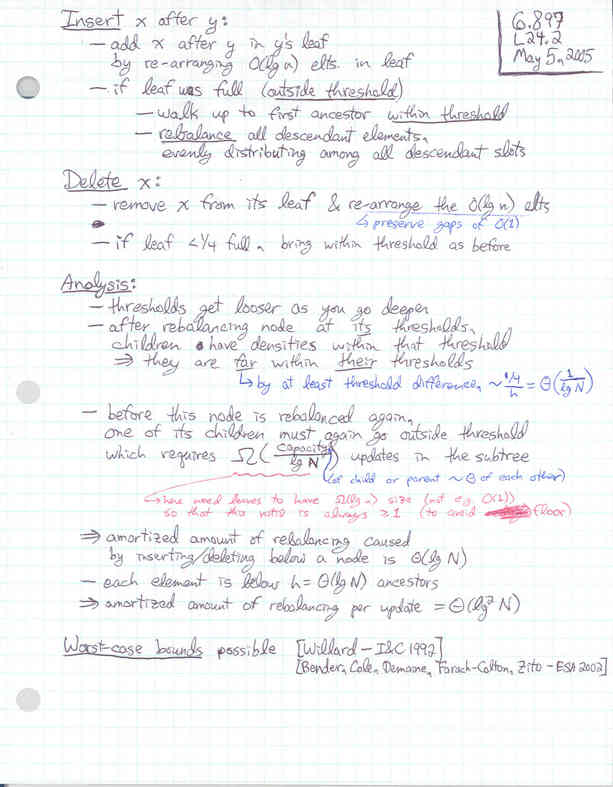 6.897
L24.2
May 5, 2005
Insert x after y:
– add x after y in y's leaf
by re-arranging O(lg n) elts. in leaf
– if leaf was full (outside threshold)
– walk up to first ancestor within threshold
– rebalance all descendant elements,
evenly distributing among all descendant slots
Delete x:
– remove x from its leaf & re-arrange the O(lg n) elts
↳ preserve gaps of O(1)
– if leaf <1/4 full, bring within threshold as before
Analysis:
– thresholds get looser as you go deeper
– after rebalancing node at its thresholds,
children have densities within that threshold
⇒ they are far within their thresholds
↳ by at least threshold difference, ~ 1/4/h = Θ(1/lg N)
– before this node is rebalanced again,
one of its children must again go outside threshold
which requires Ω(capacity/lg N) updates in the subtree
(of child or parent ~ Θ of each other)
↳ here need leaves to have Ω(lg n) size (not e.g. O(1))
so that this ratio is always ≥1 (to avoid floor)
⇒ amortized amount of rebalancing caused
by inserting/deleting below a node is Θ(lg N)
– each element is below h = Θ(lg N) ancestors
⇒ amortized amount of rebalancing per update = Θ(lg² N)
Worst-case bounds possible [Willard – I&C 1992]
[Bender, Cole, Demaine, Farach-Colton, Zito – ESA 2002]